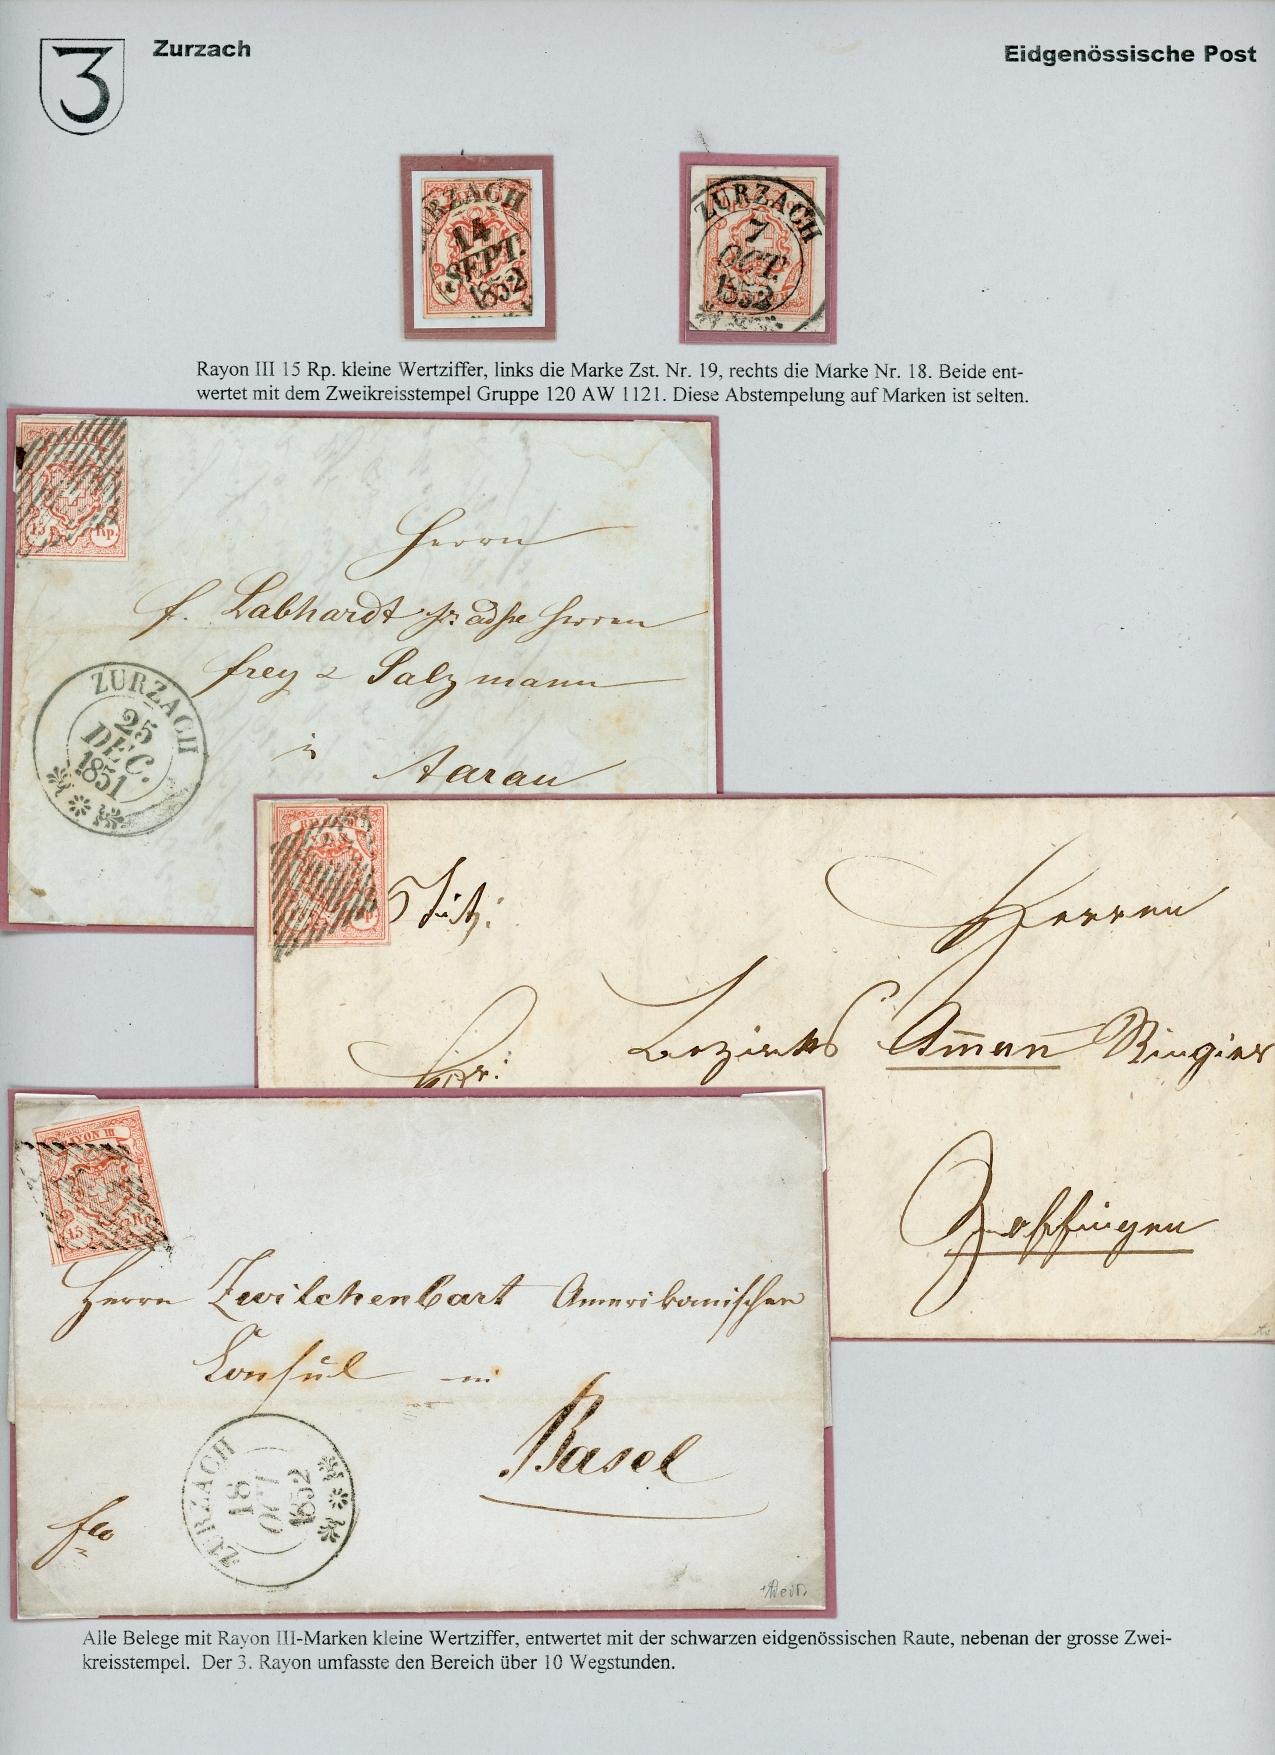 3 Zurzach Eidgenössische Post
ZURZACH
14
SEPT.
1852
ZURZACH
7
OCT.
1852
Rayon III 15 Rp. kleine Wertziffer, links die Marke Zst. Nr. 19, rechts die Marke Nr. 18. Beide ent-
wertet mit dem Zweikreisstempel Gruppe 120 AW 1121. Diese Abstempelung auf Marken ist selten.
15 Rp.
Herrn
f. Labhardt pr. adsse Herren
frey & Salzmann
in
Aarau
ZURZACH
25
DEC.
1851
Rp.
Titl:
Herren
Bezirks Amman Ringier
Zoffingen
RAYON III
15 Rp
Herrn Zwilchenbart Amerikanischen
Consul in
Basel
ZURZACH
18
OCT
1852
fco
Alle Belege mit Rayon III-Marken kleine Wertziffer, entwertet mit der schwarzen eidgenössischen Raute, nebenan der grosse Zwei-
kreisstempel. Der 3. Rayon umfasste den Bereich über 10 Wegstunden.